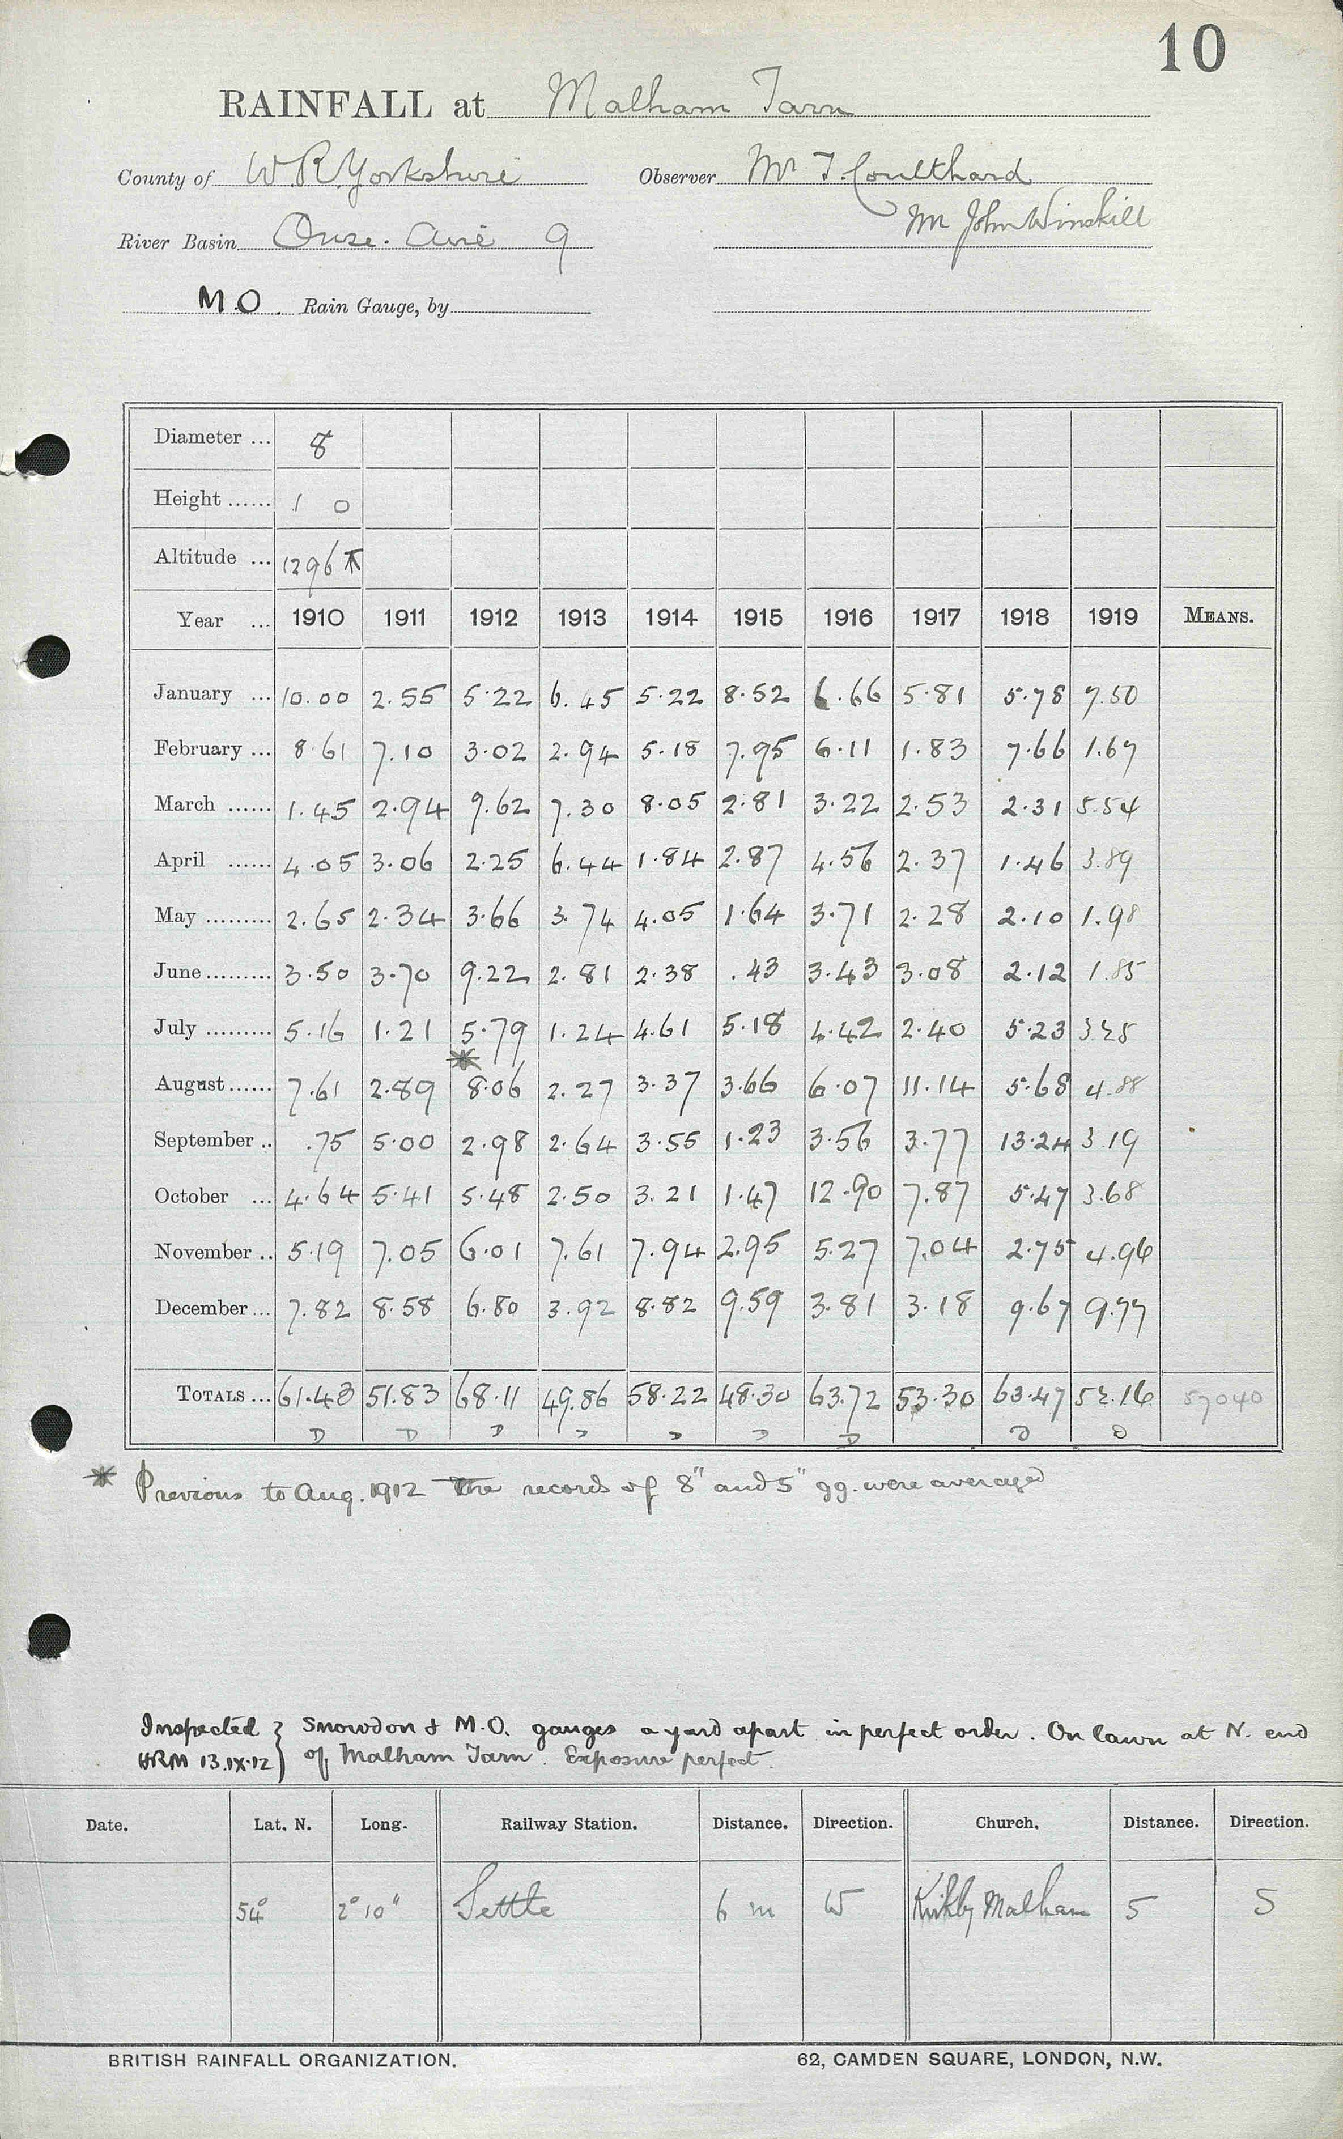 10
RAINFALL at Malham Tarn
County of W.R. Yorkshire Observer Mr T. Coulthard
Mr John Winskill
River Basin Ouse. Aire 9
M.O. Rain Gauge, by
Diameter ... 8
Height ...... 1 0
Altitude ... 1296 T
Year ... 1910 1911 1912 1913 1914 1915 1916 1917 1918 1919 MEANS.
January ... 10.00 2.55 5.22 6.45 5.22 8.52 6.66 5.81 5.78 7.50
February ... 8.61 7.10 3.02 2.94 5.18 7.95 6.11 1.83 7.66 1.67
March ...... 1.45 2.94 9.62 7.30 8.05 2.81 3.22 2.53 2.31 5.54
April ...... 4.05 3.06 2.25 6.44 1.84 2.87 4.56 2.37 1.46 3.89
May ......... 2.65 2.34 3.66 3.74 4.05 1.64 3.71 2.28 2.10 1.98
June ......... 3.50 3.70 9.22 2.81 2.38 .43 3.43 3.08 2.12 1.85
July ......... 5.16 1.21 5.79 1.24 4.61 5.18 4.42 2.40 5.23 3.25
August ...... 7.61 2.89 * 8.06 2.27 3.37 3.66 6.07 11.14 5.68 4.88
September .. .75 5.00 2.98 2.64 3.55 1.23 3.56 3.77 13.24 3.19
October ... 4.64 5.41 5.48 2.50 3.21 1.47 12.90 7.87 5.47 3.68
November .. 5.19 7.05 6.01 7.61 7.94 2.95 5.27 7.04 2.75 4.96
December ... 7.82 8.58 6.80 3.92 8.82 9.59 3.81 3.18 9.67 9.77
TOTALS ... 61.43 51.83 68.11 49.86 58.22 48.30 63.72 53.30 63.47 52.16 57040
* Previous to Aug. 1912 The records of 8" and 5" gg. were averaged
Inspected } Snowdon & M.O. gauges a yard apart in perfect order. On lawn at N. end
HRM 13.IX.12 } of Malham Tarn. Exposure perfect.
Date. Lat. N. Long. Railway Station. Distance. Direction. Church. Distance. Direction.
54° 2° 10" Settle 6 m W Kirkby Malham 5 S
BRITISH RAINFALL ORGANIZATION. 62, CAMDEN SQUARE, LONDON, N.W.